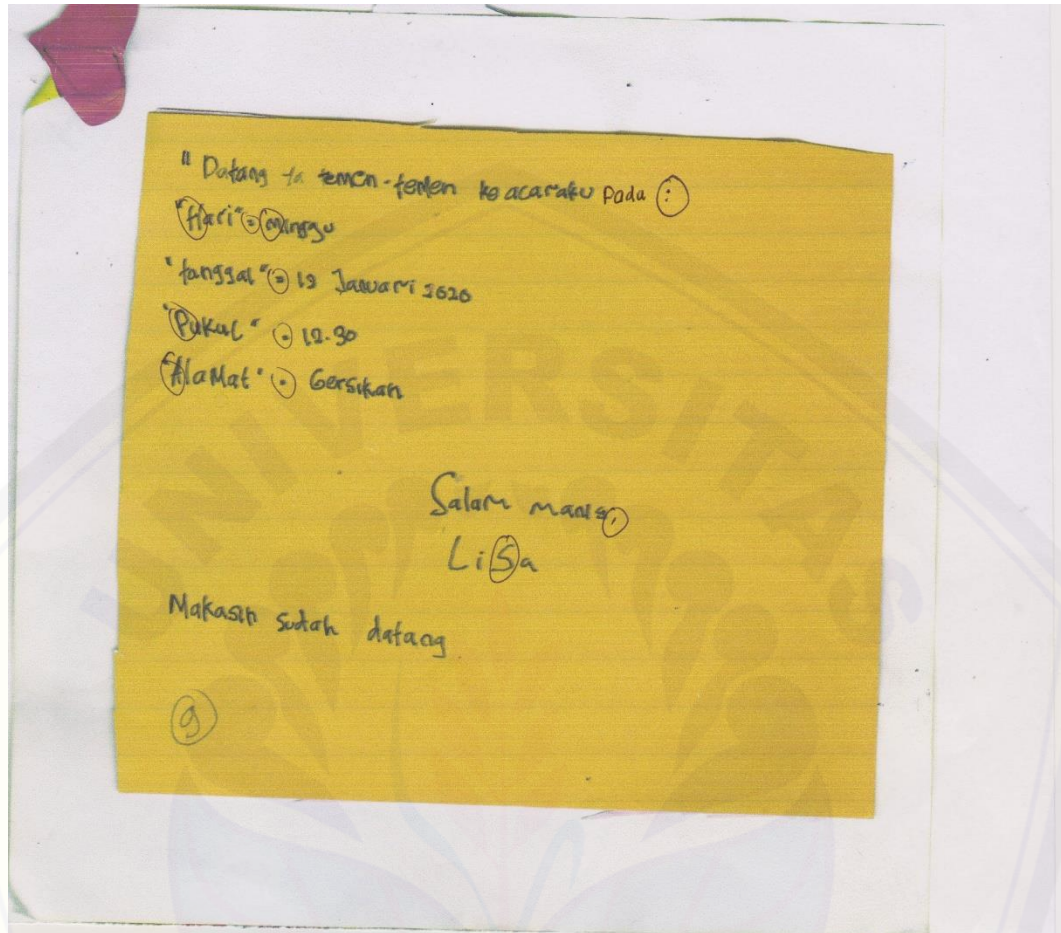 " Datang ya temen-temen ke acaraku pada :
"Hari" : Minggu
"tanggal" : 19 Januari 2020
"Pukul" : 12.30
"Alamat" : Gersikan
Salam manis,
LiSa
Makasih sudah datang
9
UNIVERSITAS